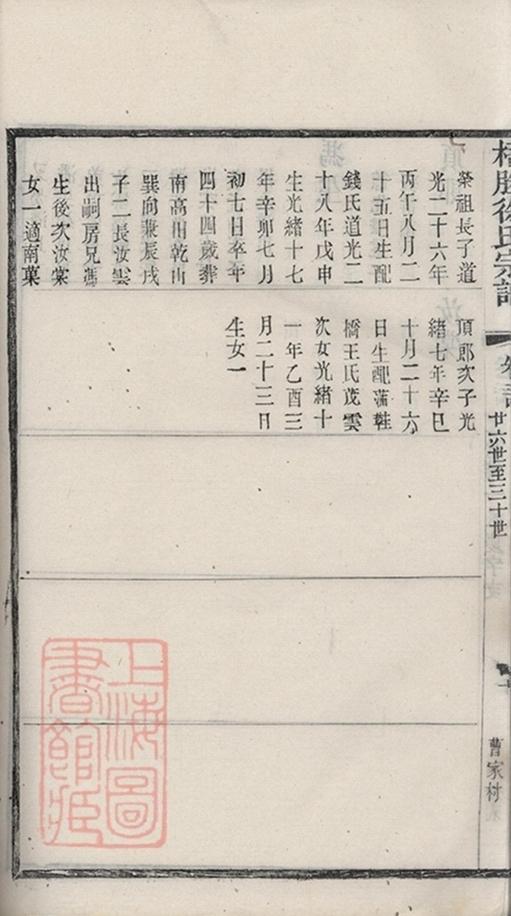 徐氏宗譜
廿六世至三十世
曹家村
榮祖長子道
光二十六年
丙午八月二
十五日生配
錢氏道光二
十八年戊申
生光緒十七
年辛卯七月
初七日卒年
四十四歲葬
南高田乾山
巽向兼辰戌
子二長汝雲
出嗣房兄馮
生後次汝棠
女一適南菓
頂郎次子光
緒七年辛巳
十月二十六
日生配蒲鞋
橋王氏茂雲
次女光緒十
一年乙酉三
月二十三日
生女一
上海圖
書館藏